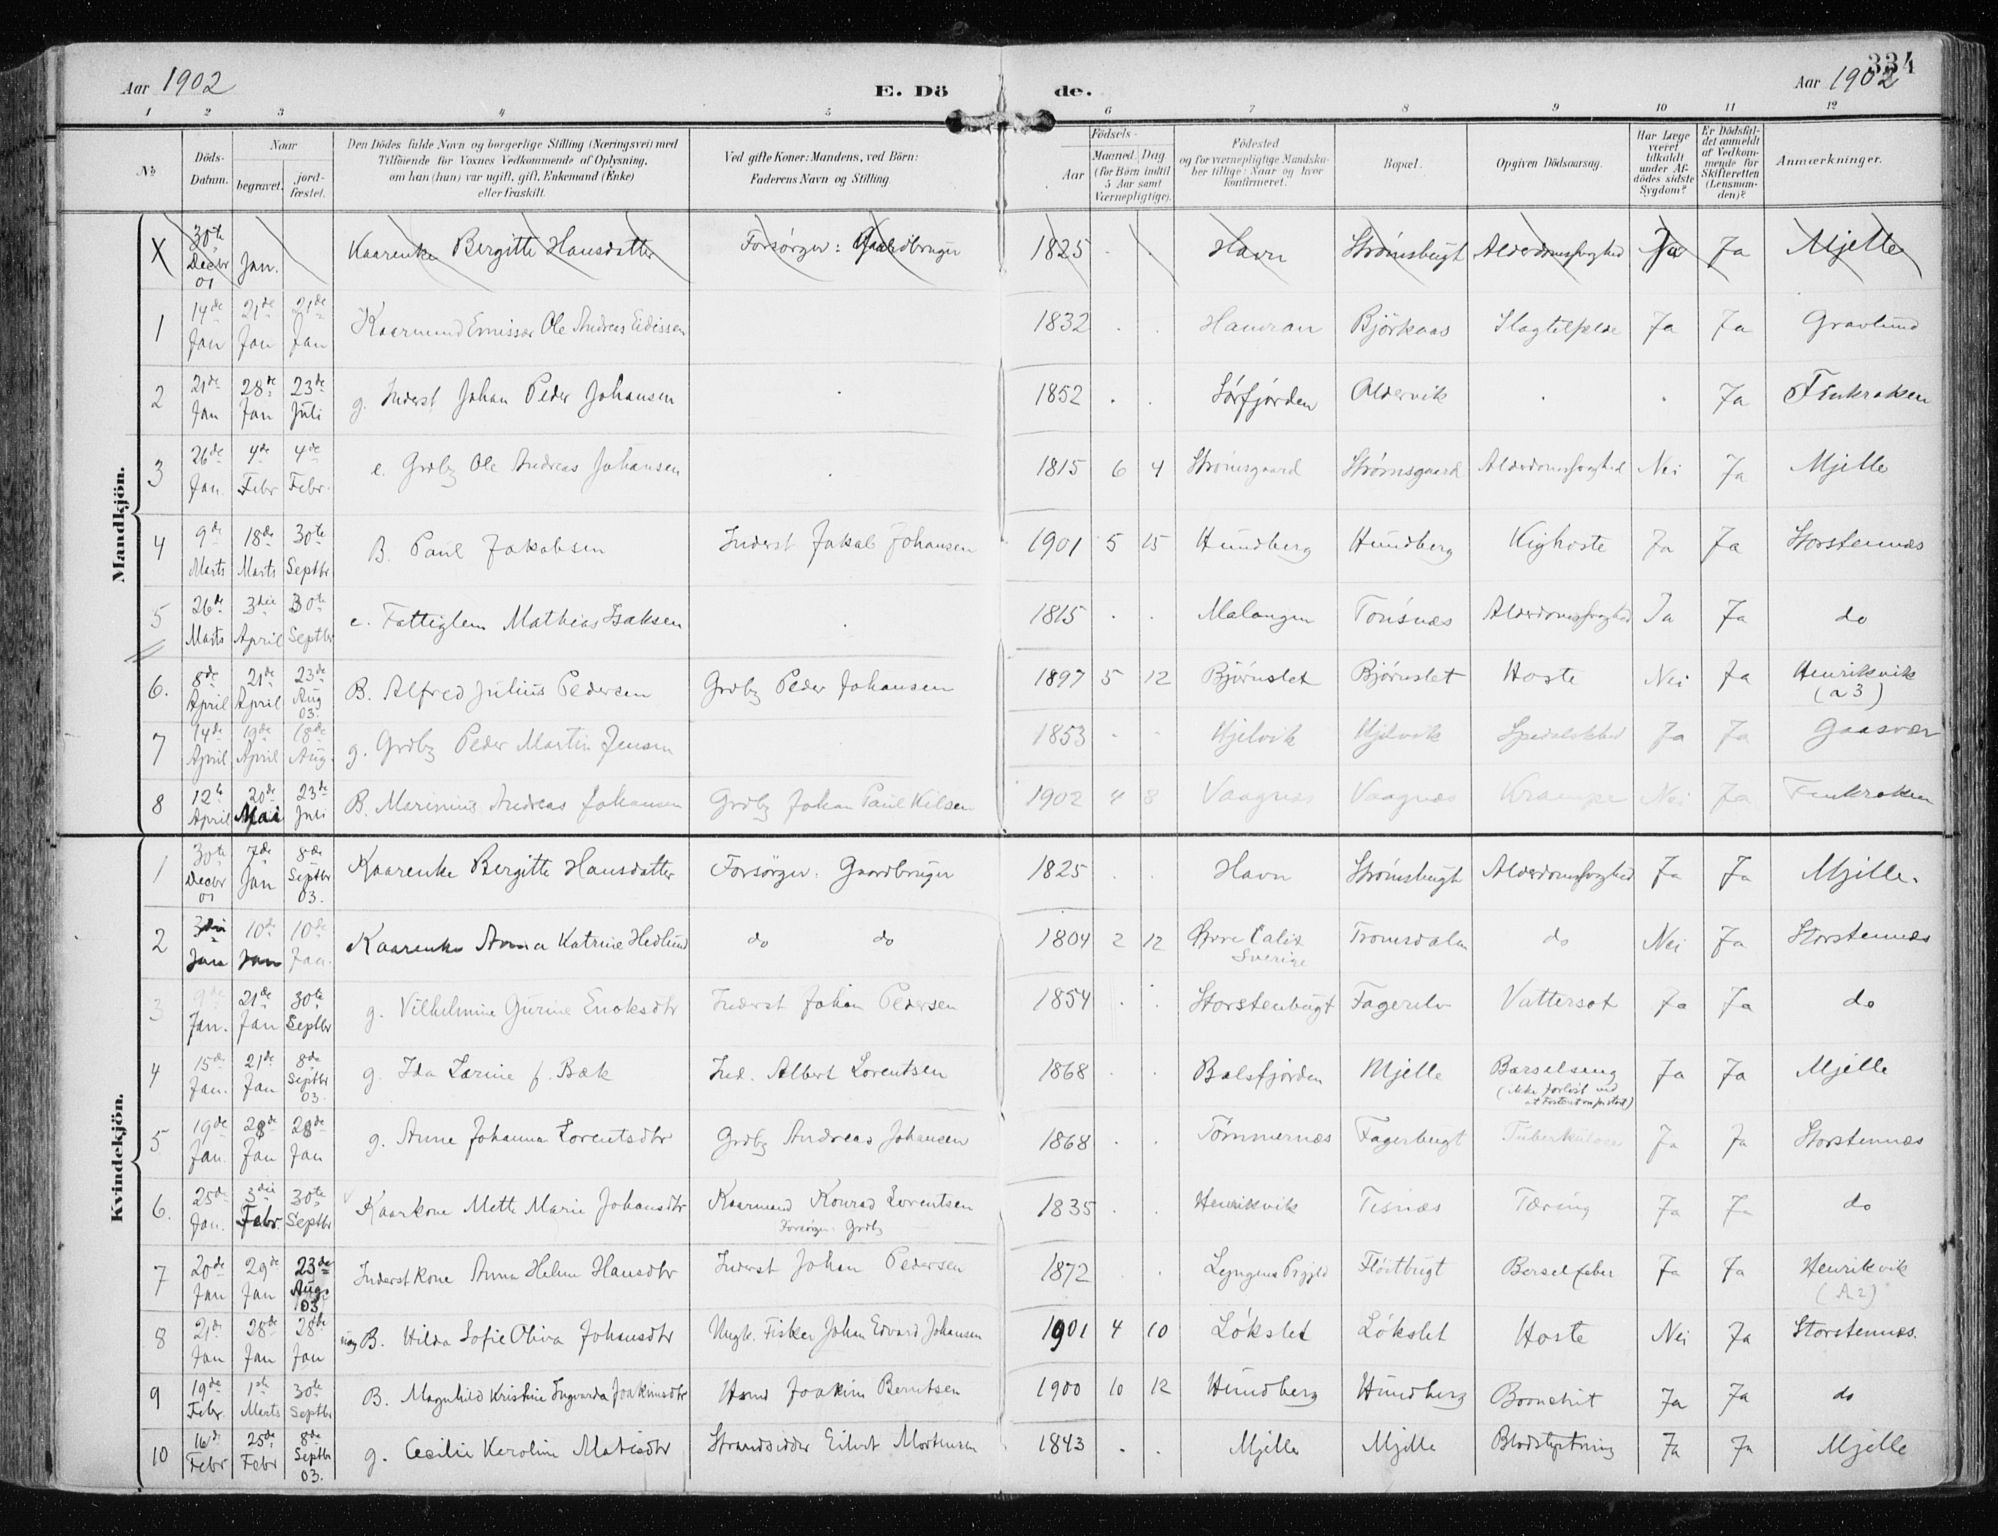 334
Aar 1902 E. Dö de. Aar 1902
1 2 3 4 5 6 7 8 9 10 11 12
No Döds-Datum. Naar begravet. jordfæstet. Den Dödes fulde Navn og borgerlige Stilling (Næringsvei) med Tilföiende for Voxnes Vedkommende af Oplysning, om han (hun) var ugift, gift, Enkemand (Enke) eller fraskilt. Ved gifte Koner: Mandens, ved Börn: Faderens Navn og Stilling. Födsels- Aar Maaned. Dag (for Börn indtil 5 Aar samt Værnepligtige). Födested og for værnepligtige Mandskaber tillige: Naar og hvor konfirmeret. Bopæl. Opgiven Dödsaarsag. Har Læge været tilkaldt under Afdödes sidste Sygdom? Er Dödsfaldet anmeldt af Vedkommende for Skifteretten (Lensmanden)? Anmærkninger.
Mandkjön.
X 30te Decbr 01 Jan. Kaarenke Bergitte Hansdatter Forsørger: Gaardbruger 1825 . Havn Strømsbugt Alderdomssvaghed Ja Ja Mjelle
1 14de Jan 21de Jan 21de Jan Kaarmand Emissær Ole Andreas Eidissen 1832 . . Björkaas Ja Ja Gravlund
2 21de Jan 28de Jan 23de Juli g. Inderst Johan Peder Johansen . 1852 . . Sørfjorden Oldervik . . Ja Finkroken
3 26de Jan. 4de Febr 4de Febr. e. Grdbg Ole Andreas Johansen . 1815 6 4 Strømsgaard Strømsgaard Alderdomssvaghed Nei Ja Mjelle
4 9de Marts 18de Marts 30te Septbr B. Paul Jakobsen Inderst Jakob Johansen 1901 5 15 Hundberg Hundberg Kighoste Ja Ja Storstennæs
5 26de Marts 3die April 30te Septbr e. Fattiglem Mathias Isaksen . 1815 . . Malangen Tonsnæs Alderdomssvaghed Ja Ja do
6. 8de April 21de April 23de Aug 03. B. Alfred Julius Pedersen Grdbg Peder Johansen 1897 5 12 Bjørnslet Bjørnslet Hoste Nei Ja Henrikvik (a 3)
7 14de April 19de April 18de Aug. g. Grdbg Peder Martin Jensen 1853 . . Kjelvik Kjelvik Spedalskhed Ja Ja Gaasvær
8 12te April 20de Mai 23de Juli B. Marinius Andreas Johansen Grdbg Johan Paul Nilsen 1902 4 8 Vaagnæs Vaagnæs Krampe Nei Ja Finkroken
Kvindekjön.
1 30te Decbr 01 7de Jan 8de Septbr 03. Kaarenke Bergitte Hansdatter Forsørger: Gaardbruger 1825 . . Havn Strømsbugt Alderdomssvaghed Ja Ja Mjelle.
2 3die Jan 10de Jan 10de Jan. Kaarenke Anna Katrine Hedlund do do 1804 2 12 Øvre Calix Sverige Tromsdalen do Nei Ja Storstennæs
3 9de Jan. 21de Jan 30te Septbr g. Vilhelmine Gurine Enoksdtr Inderst Johan Pedersen 1854 . . Storstenbugt Fagerelv Vattersot Ja Ja do
4 15de Jan. 21de Jan 8de Septbr 03. g. Ida Larine f. Bæk Ind. Albert Lorentsen 1868 . . Balsfjorden Mjelle Barselseng (ikke forløst ved Ja Ja Mjelle
5 19de Jan. 28de Jan 28de Jan g. Anne Johanna Lorentsdtr Grdbg Andreas Johansen 1868 . . Tømmernæs Fagerbugt Tuberkulose Ja Ja Storstennæs
6. 25de Jan. 3die Febr. 30te Septbr Kaarkone Mette Marie Johansdtr Kaarmand Konrad Lorentsen Forsørger: Grdbg 1835 . . Henrikvik Tisnæs Tæring Ja Ja do
7 20de Jan 29de Jan 23de Aug. 03 Inderstkone Anna Helene Hansdtr Inderst Johan Pedersen 1872 . . Lyngens Prgjld Fløitbugt Barselfeber Ja Ja Henrikvik (A 2)
8 21de Jan 28de Jan 28de Jan B. Hilda Sofie Oliva Johansdtr Ungk. Fisker Johan Edvard Johansen 1901 4 10 Løkslet Løkslet Hoste Nei Ja Storstennæs.
9 19de Febr. 1ste Marts 30te Septbr B. Magnhild Kristine Ingvarda Joakimsdtr Joakim Berntsen 1900 10 12 Hundberg Hundberg Ja Ja do
10 16de Febr 25de Febr 8de Septbr 03. g. Cecilie Karoline Mathisdtr Strandsidder Eilert Mortensen 1843 . . Mjelle Mjelle Blodstyrtning Ja Ja Mjelle